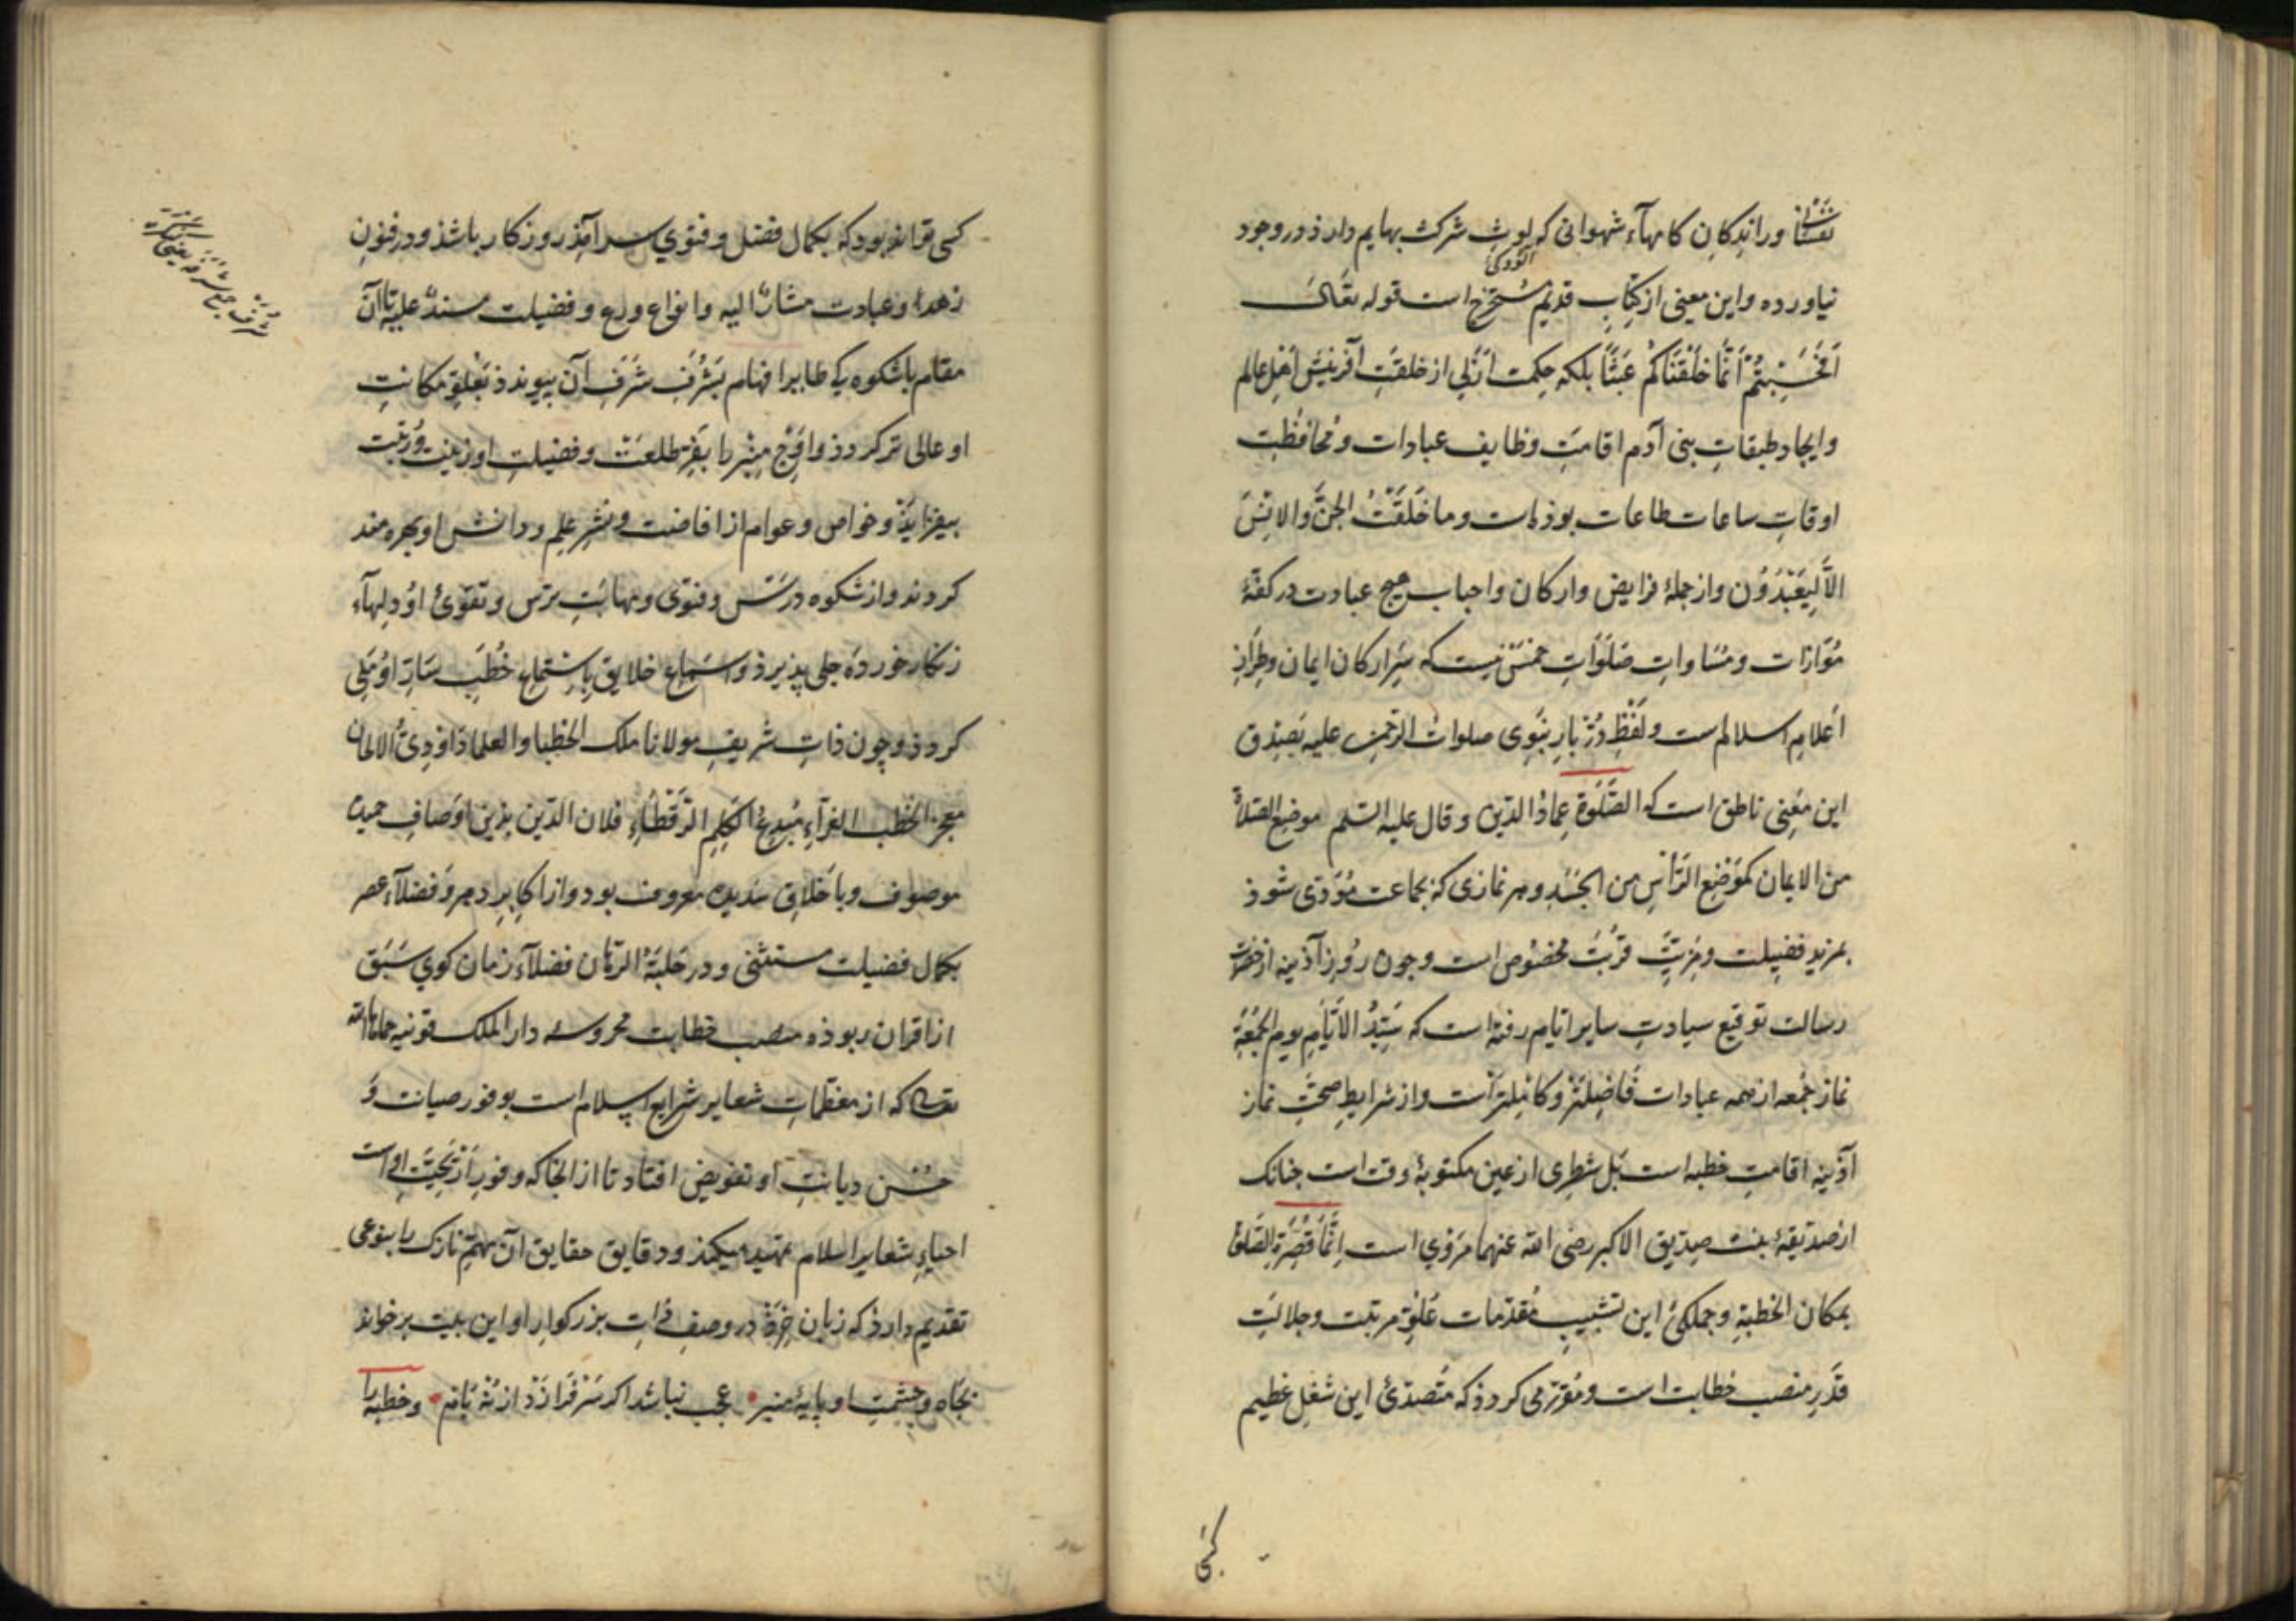 نفسانی و رانندکان کامهآء شهوانی که لوث شرکت بهایم دارذ در وجود
نیاورده و این معنی از کتاب قدیم مستخرج است قوله تعالی
اَفَحَسِبْتُمْ اَنَّمَا خَلَقْنَاکُمْ عَبَثًا بلکه حکمت اَزَلی از خلقتِ آفرینش اَهلِ عالم
و ایجاد طبقاتِ بنی آدم اقامتِ وظایف عبادات و محافظت
اوقاتِ ساعات طاعات بوذه است و ما خَلَقْتُ الجنَّ والانسَ
الّا لِیَعْبُدُوْن و از جملهٔ فرایض و ارکان و اجباب هیچ عبادت در کفّهٔ
مُوَازات و مُسَاواتِ صَلَوَاتِ خمس نیست که سَرِ ارکان ایمان و طرازِ
اَعلامِ اسلامست و لَفْظِ دُرْبارِ نَبَوِی صلوات الرحمن علیه بَصِدْق
این مَعِنی ناطق است که الصَّلَوة عِمادُ الدّین و قال علیه السلم موضع الصّلاة
من الایمان کمَوْضِع الرَّأسِ من الجَسَدِ و هر نمازی که بجماعت مُؤَدّی شوذ
بمزیدِ فضیلت و مزیّتِ قُربَت مخصُوص است و چون روُزِ آذینه از حضرت
رسالت توقیع سیادتِ سایر ایّام رفته است که سَیّدُ الاَیّامِ یوم الجُمُعَةِ
نماز جُمعه از همه عبادات فَاضِلتَر و کامِلترَست و از شرایطِ صحّتِ نماز
آذینه اقامتِ خطبه است بَل شَطرِی از عین مکتوبهٔ وقت است جنانک
از صدّیقهٔ بنت صدّیق الاکبر رضی الله عنهما مَرْوِی است اِنَّمَا قُصِرَتِ الصَّلوة
بمکان الخطبةِ و جملکیٔ این تشبیبِ مُقدّمات عُلُوِّ مرتبت و جلالتِ
قَدْرِ منصب خطابت است و مُقرّر می کردذ که مُتصَدّیٔ این شغلِ عَظیم
کسی
کسی تواند بود که بکمال فضل و فتوی سرآمذ روزکار باشذ و در فنونِ
زهد و عبادت مشارٌ الیه و انواع ورع و فضیلت مسندٌ علیه تا آن
مقام باشکوه بشَرَفِ آن بیوندذ بعُلوِّ مکانتِ
او عالی تر کردذ و اوج منبر را بفرِّ طلعت و فضیلت او زینت و رُتبت
بیفزایذ و خواص و عوام از افاضت و نشرِ علم و دانش او بهره مند
کردند و از شکوه درس و فتوی و مهابتِ ترس و تقوَیٔ اوُ دِلهآء
زنکار خورده جلی پذیرذ و اسماع خلایق باِستماع خُطَبِ
کردذ و چون ذاتِ شریفِ مولانا ملک الخطبا و العلما داوُدِیُّ الالحان
معجز الخطب الغرآءِ مُبدِعُ الکَلِمِ الرَّقْطاءِ فلان الدین بذین اَوصافِ حمیده
موصوف و باَخلاقِ سدیده معروف بود و از اکابِرِ دهر و فضلآء عصر
بکمال فضیلت مستثنی و در حَلبَةُ الرّهان فضلآءِ زمان کوی سَبَق
از اقران ربوذه منصب خطابت محروسه دار الملک قونیه حماها الله
تعالی که از معظّماتِ شعایر شرایع اسلام است بوفور صیانت وَ
حُسْن دیانتِ او تفویض افتاد تا از انجا که وفورِ اَرْیَحِیّتِ او است
احیاءِ شعایر اسلام بتهید میکند و دقایق حقایق آن مهمّ نازک را بنوعی
تقدیم دارذ که زبان خِرَدْ در وصفِ ذاتِ بزرکوارِ او این بیت برخواند
بجَاه و حشمتِ او پایهٔ منبر • عجب نباشد اکر سَرْفَرازَذ از نُه بَام • و خطبه را